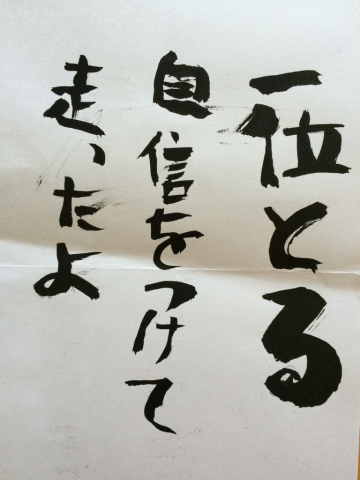 一位とる
自信をつけて
走ったよ